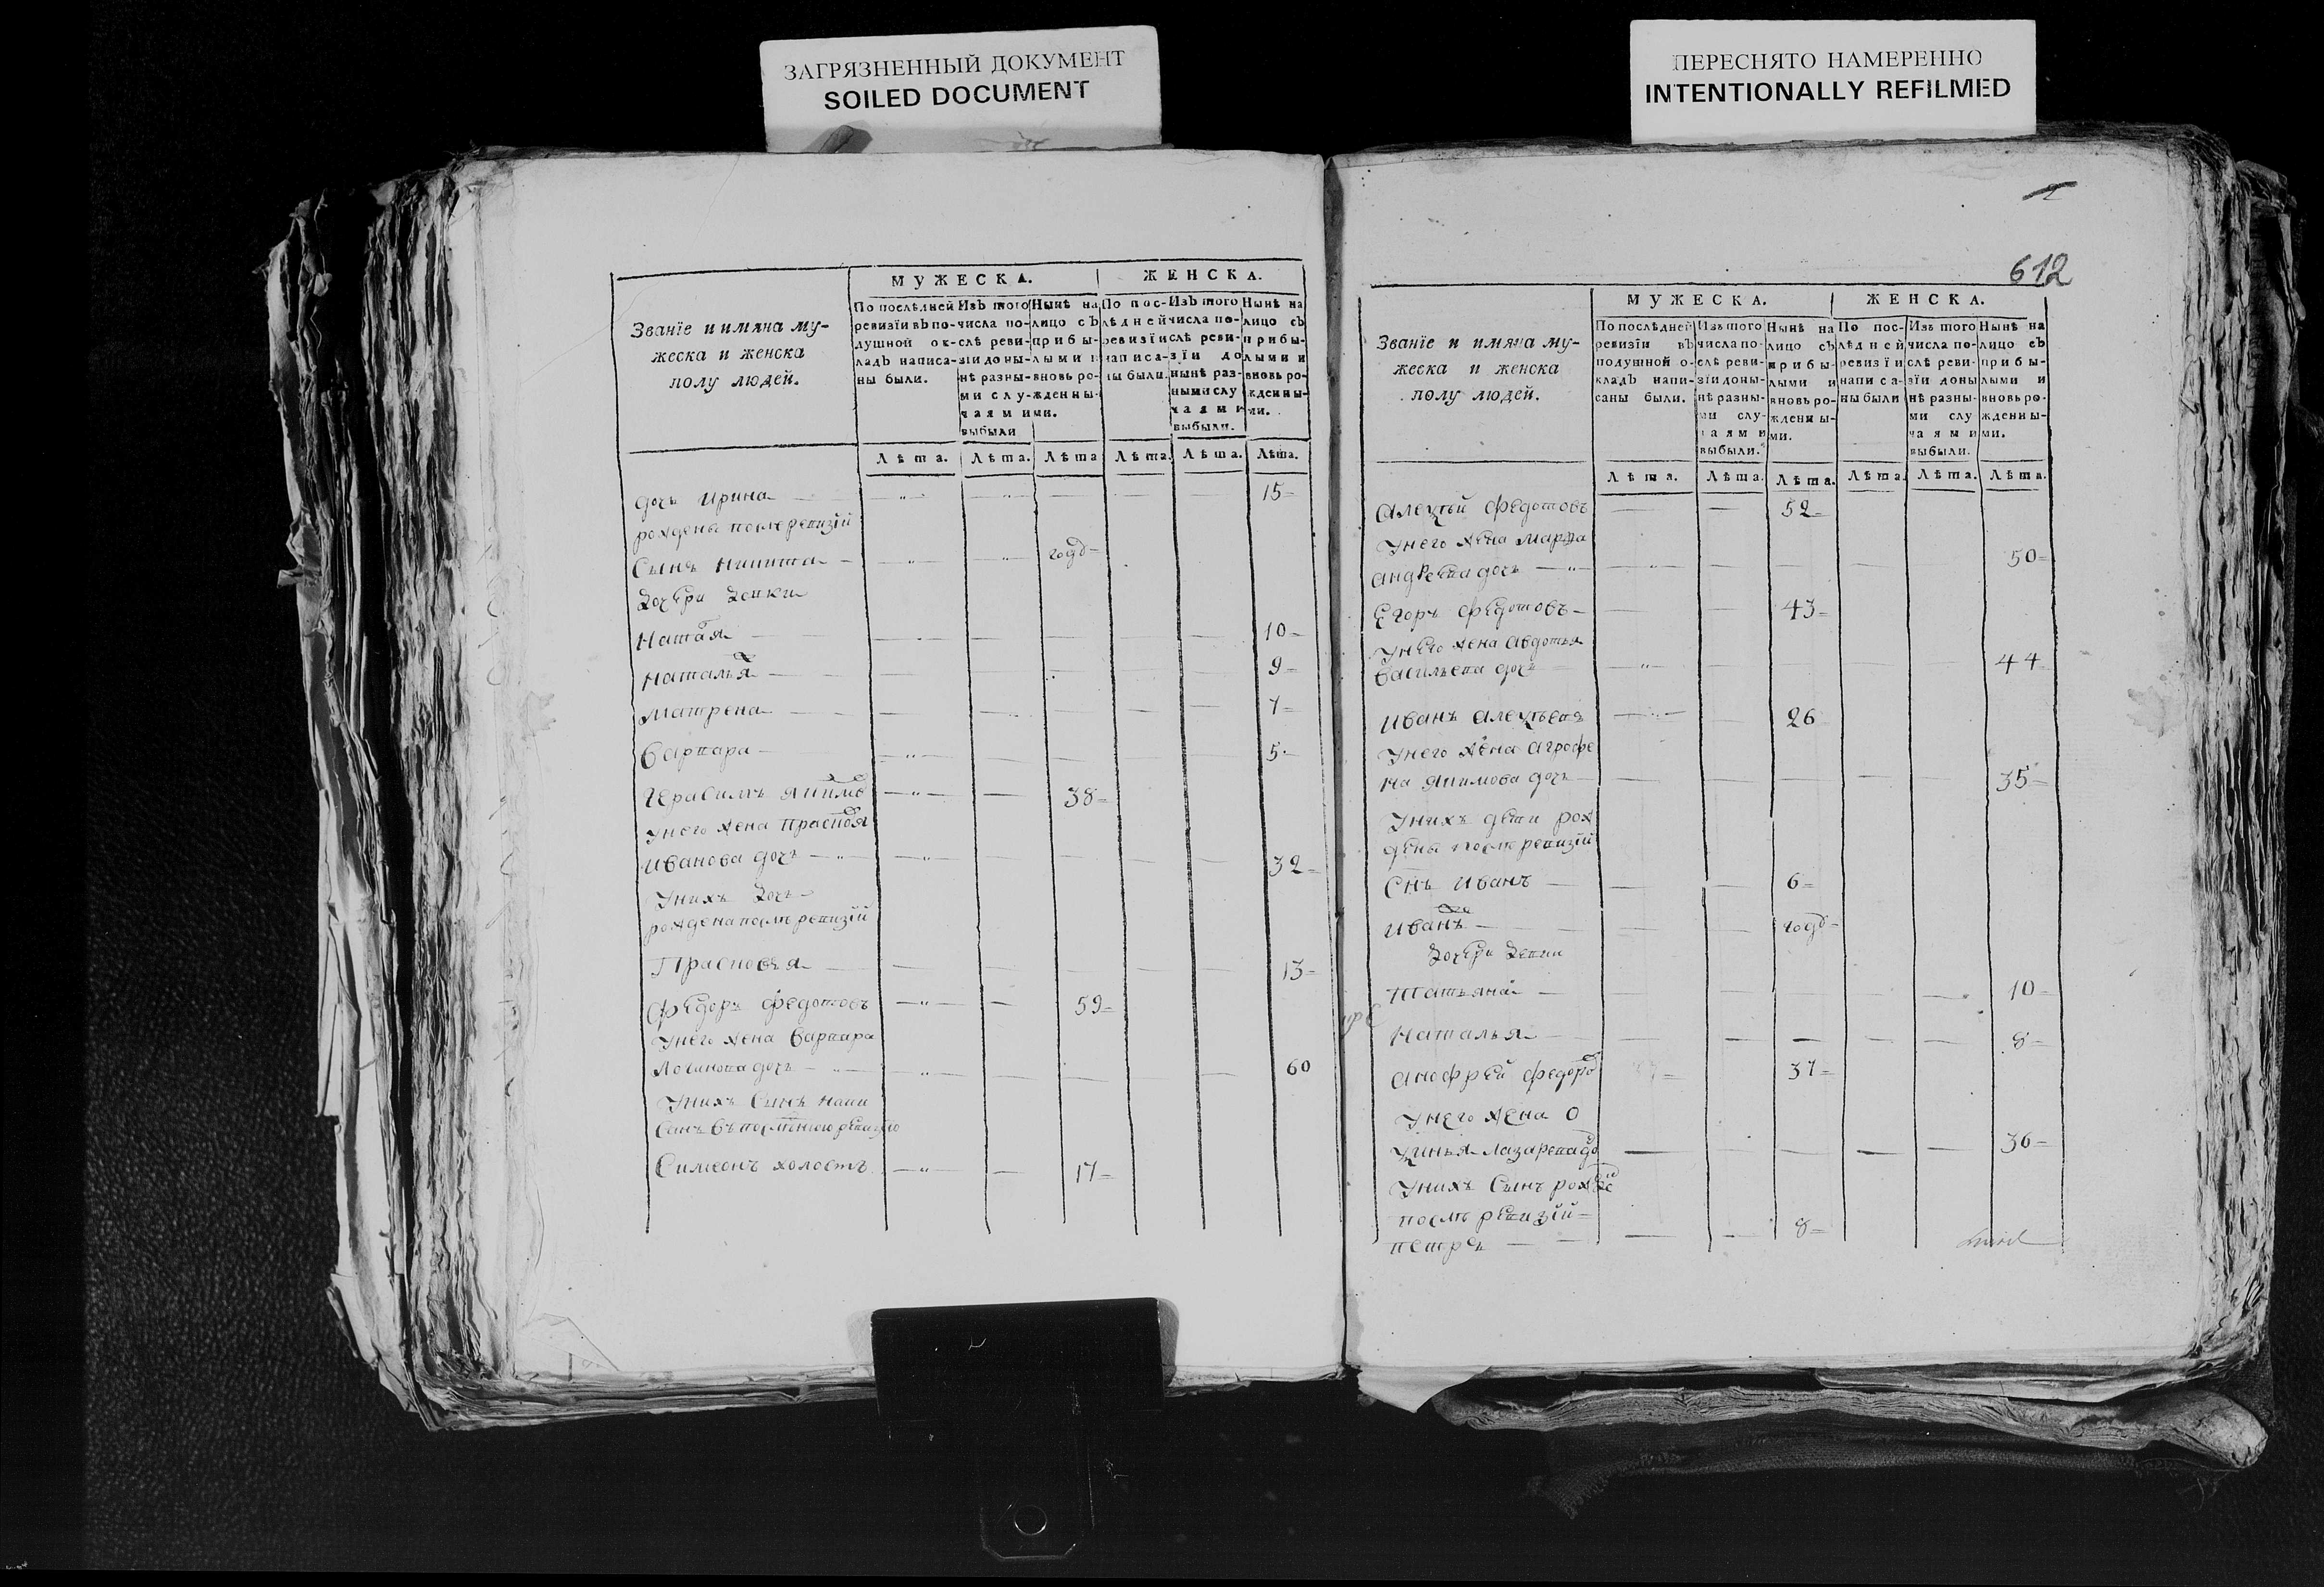 ЗАГРЯЗНЕННЫЙ ДОКУМЕНТ
SOILED DOCUMENT
ПЕРЕСНЯТО НАМЕРЕННО
INTENTIONALLY REFILMED
МУЖЕСКА. ЖЕНСКА.
Званїе и имяна му-
жеска и женска
полу людей.
По послѣдней
ревизїи вЪ по-
душной ок-
ладЪ написа-
ны были.
ИзЪ того
числа по-
слѣ реви-
зїи до ны-
нѣ разны-
ми слу-
чаями
выбыли
Нынѣ на
лицо сЪ
прибы-
лыми и
вновь ро-
жденны-
ми.
По пос-
лѣдней
ревизїи
написа-
ны были.
ИзЪ того
числа по-
слѣ реви-
зїи до
нынѣ раз-
ными слу
чаями
выбыли.
Нынѣ на
лицо сЪ
прибы-
лыми и
вновь ро-
жденны-
ми.
Лѣта. Лѣта. Лѣта Лѣта. Лѣта. Лѣта.
дочь Ирина 15
рождены после ревизїи
Сынъ Никита годъ
Дочери Девки
10
Наталья 9
Матрена 7
Варвара 5
Герасимъ 38
У него жена
Иванова дочь 32
У нихъ Дочь
рождена послѣ ревизїи
Прасковья 13
Федоръ Федотовъ 59
У него жена Варвара
Логинова дочь 60
У нихъ Сынъ напи
санъ въ последнюю ревизию
Симеонъ холостъ 17
2
612
МУЖЕСКА. ЖЕНСКА.
Званїе и имяна му-
жеска и женска
полу людей.
По послѣдней
ревизїи вЪ
подушной о-
кладЪ напи-
саны были.
ИзЪ того
числа по-
слѣ реви-
зїи до ны-
нѣ разны-
ми слу-
чаями
выбыли.
Нынѣ на
лицо сЪ
прибы-
лыми и
вновь ро-
жденны-
ми.
По пос-
лѣдней
ревизїи
написа-
ны были
ИзЪ того
числа по-
слѣ реви-
зїи до ны
нѣ разны-
ми слу
чаями
выбыли.
Нынѣ на
лицо сЪ
прибы-
лыми и
вновь ро-
жденны-
ми.
Лѣта. Лѣта. Лѣта. Лѣта. Лѣта. Лѣта.
Алексѣй Федотовъ 52
У него жена Марфа
Андреева дочь 50
Егоръ Федотовъ 43
У него жена Авдотья
Васильева дочь 44
Иванъ Алексѣевъ 26
У него жена Агрофе
на Якимова дочь 35
У нихъ дети рож
дены после ревизїи
Снъ Иванъ 6
Иванъ годъ
Дочери Девки
Татьяна 10
Наталья 8
Анофрей Федоро 37
У него жена О
ксинья Лазарева до 36
У нихъ Сынъ рожде
послѣ ревизїи
Петръ 8